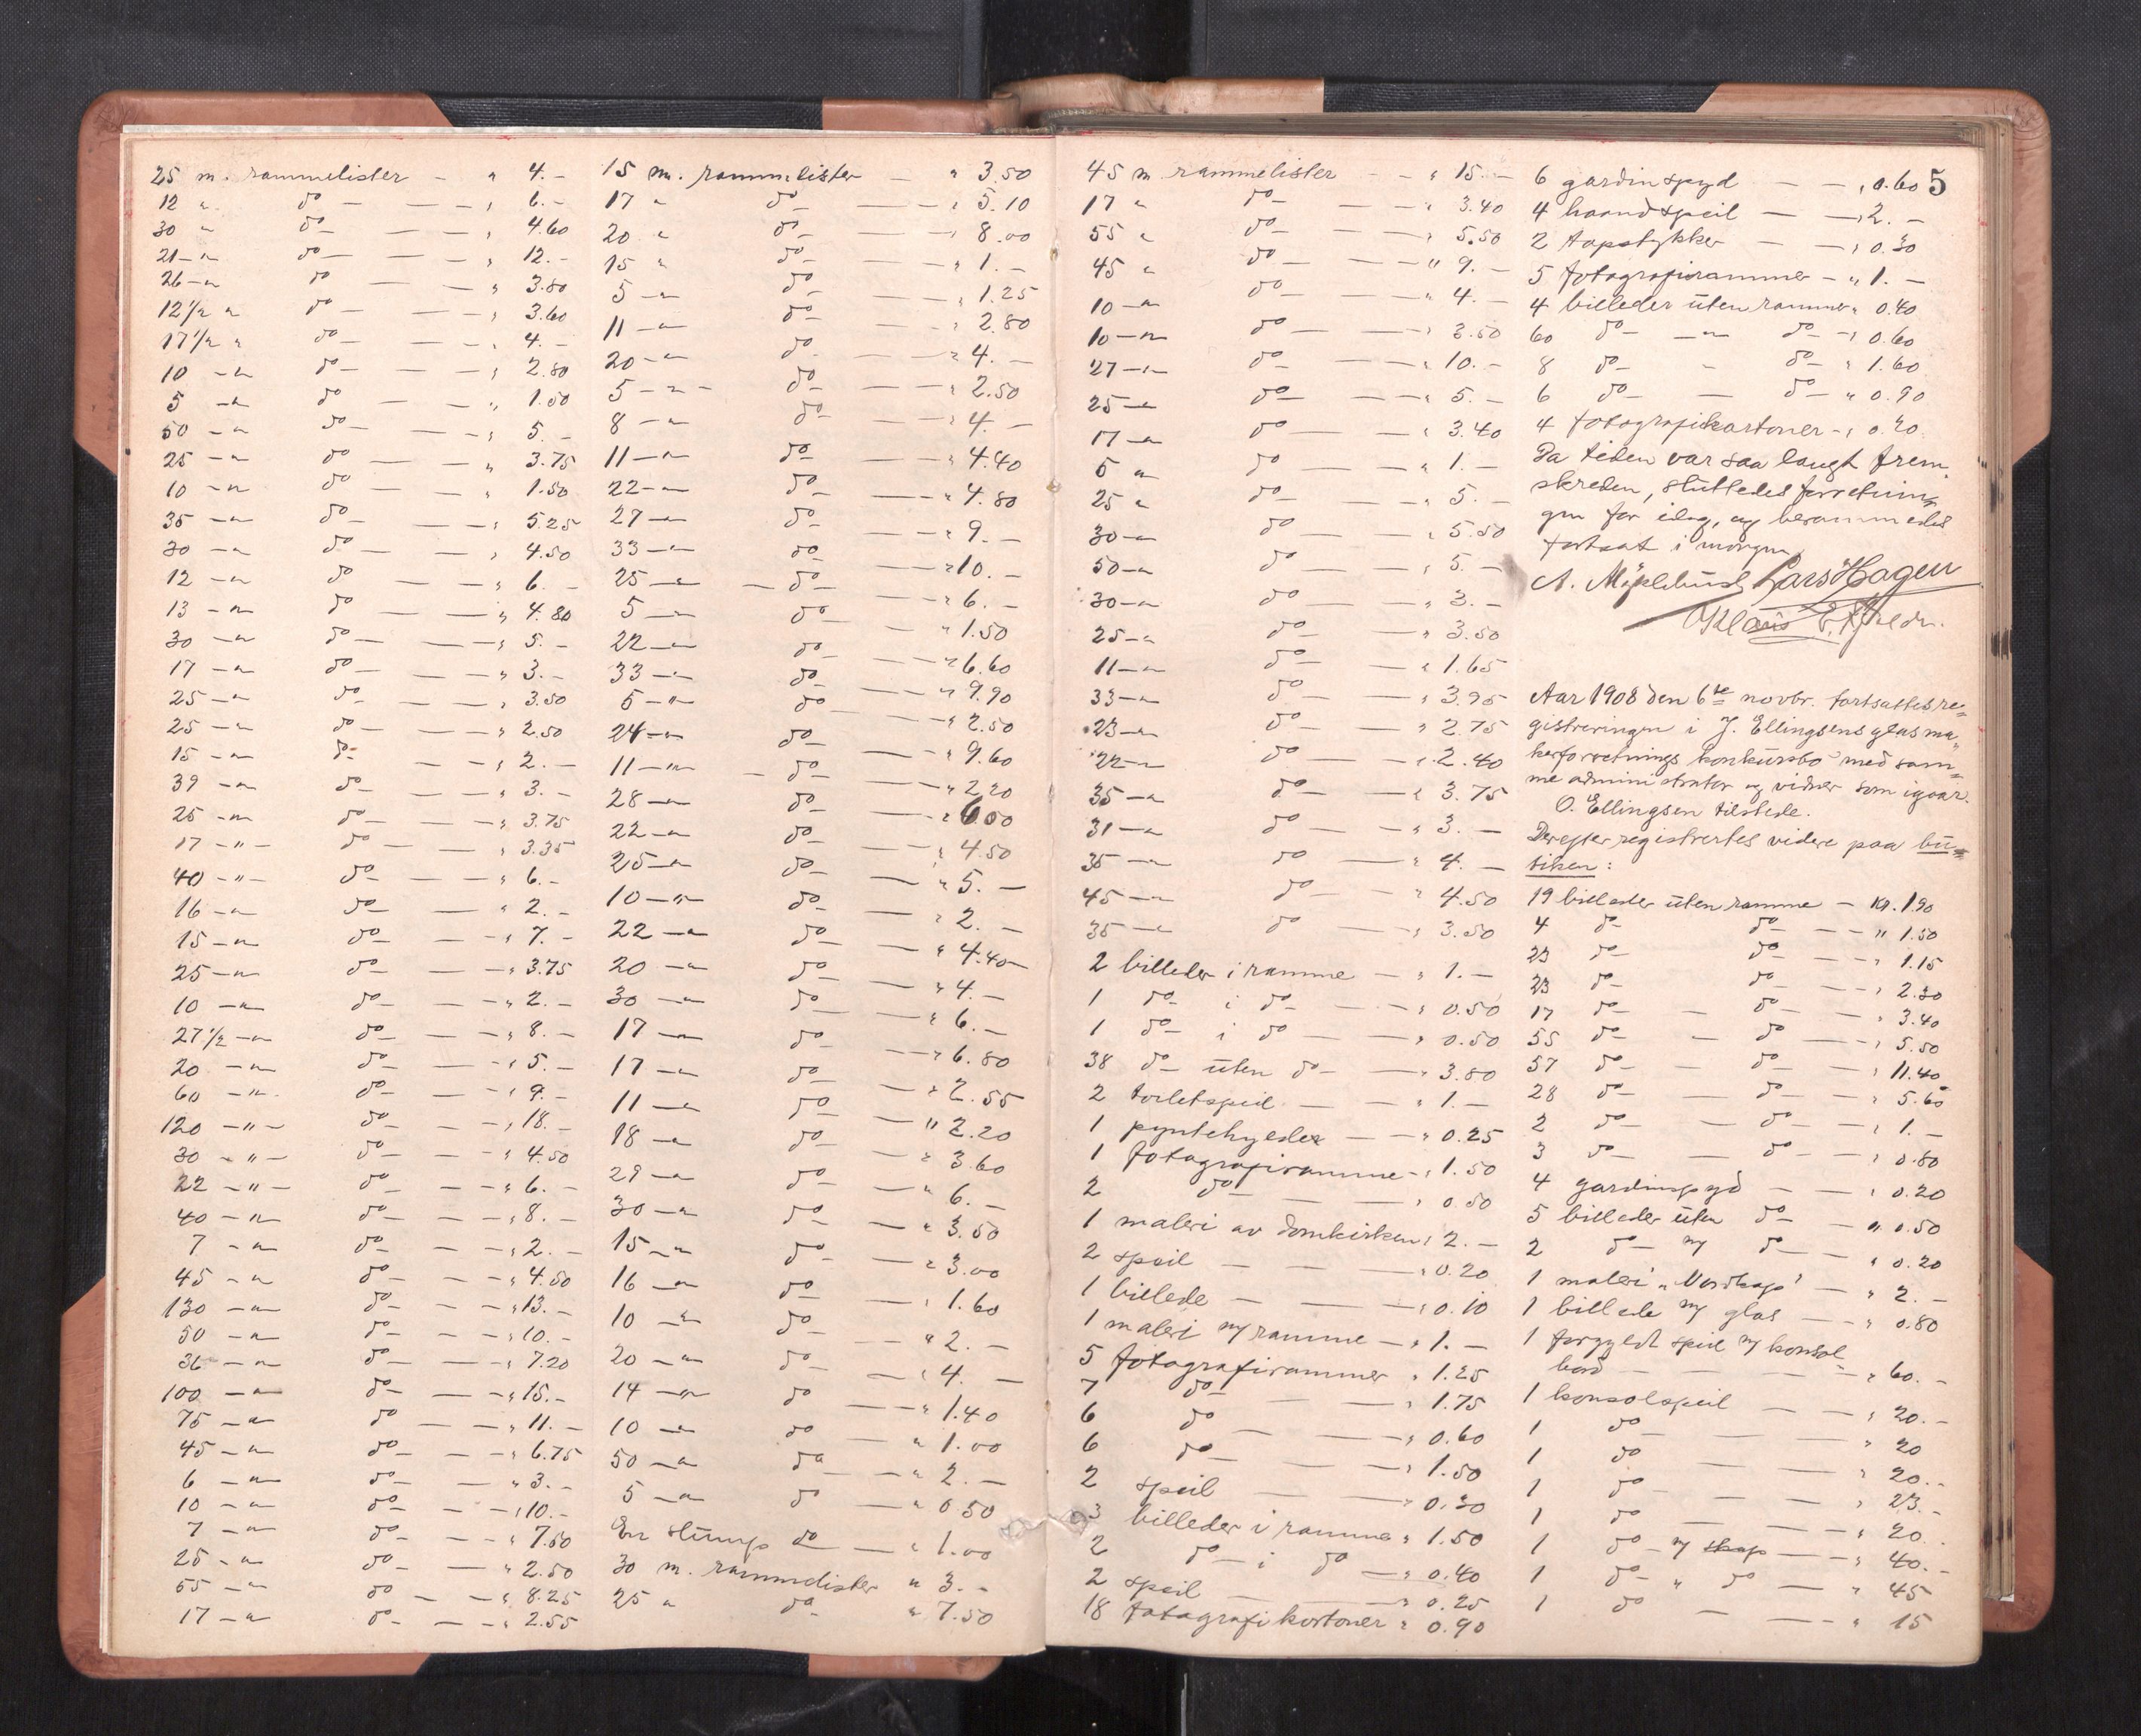 25 m. rammelister - " 4.-
12 " do - - " 6.-
30 " do - - " 4.60
21 - " do - - " 12.-
26 - " do - " 3.80
12 1/2 " do - - " 3.60
17 1/2 " do - - " 4.-
10 - " do - - " 2.80
5 - " do - - " 1.50
50 - " do - - " 5.-
25 - " do - - " 3.75
10 - " do - - " 1.50
35 - " do - - " 5.25
30 - " do - - " 4.50
12 - " do - - " 6.-
13 - " do - - " 4.80
30 - " do - - " 5.-
17 - " do - - " 3.-
25 - " do - - " 3.50
25 - " do - - " 2.50
15 - " do - - " 2.-
39 - " do - - " 3.-
25 - " do - - " 3.75
17 - " - do - - " 3.35
40 - " - do - - " 6.-
16 - " do - - " 2.-
15 - " do - - " 7.-
25 - " do - - " 3.75
10 - " do - - " 2.-
27 1/2 - " do - - " 8.-
20 - " do - - " 5.-
60 - " - do - - " 9.-
120 - " - do - - " 18.-
30 - " - do - - " 4.50
22 - " - do - - " 6.-
40 - " do - - " 8.-
7 - " do - - " 2.-
45 - " do - - " 4.50
130 - " do - - " 13.-
50 - " do - - " 10.-
36 - " do - - " 7.20
100 - " do - - " 15.-
75 - " do - - " 11.-
45 - " do - - " 6.75
6 - " do - - " 3.-
10 - " do - - " 10.-
7 - " do - - " 7.50
25 - " do - - " 2.50
55 - " do - - " 8.25
17 - " do - - " 2.55
15 m. rammelister - " 3.50
17 " do - - " 5.10
20 " do - - " 8.00
15 " do - - " 1.-
5 - " do - " 1.25
11 - " do - " 2.80
20 - " do - " 4.-
5 - " - do - - " 2.50
8 - " do - - " 4.-
11 - " do - - " 4.40
22 - " do - - " 4.80
27 - " do - " 9.-
33 - " do - " 10.-
25 - " - do - - " 6.-
5 - " do - " 1.50
22 - " do - - " 6.60
33 - " do - - " 9.90
5 - " do - - " 2.50
24 - " do - - " 9.60
11 - " - do - - " 2.20
28 - " do - - " 6.50
22 - " do - " 4.50
25 - " do - - " 5.-
10 - " do - " 2.-
22 - " do - - " 4.40
20 - " do - " 4.-
30 - " do - - " 6.-
17 - " do - - " 6.80
17 - " do - - " 2.55
11 - " do - " 2.20
18 - " do - " 3.60
29 - " do - - " 6.-
30 - " do - - " 3.50
15 - " do - - " 3.00
16 - " do - - " 1.60
10 - " do - - " 2.-
20 - " do - - " 4.-
14 - " do - - " 1.40
10 - " do - " 1.00
50 - " do - - " 2.-
5 - " do - " 0.50
En stump do - " 1.00
30 m. rammelister " 3.-
25 " do - " 7.50
45 m rammelister - - " 15.-
17 " do - - - " 3.40
55 " do - - - " 5.50
45 " do - - " 9.-
10 - " do - - " 4.-
10 - " do - - " 3.50
27 - " do - - " 10.-
25 - " do - - " 5.-
17 - " do - - " 3.40
5 " do - - " 1.-
25 " do - - " 5.-
30 - " do - " 5.50
50 - " do - " 5.-
30 - " do - - " 3.-
25 - " do - - " 3.50
11 - " do - - " 1.65
33 - " do - - " 3.95
23 - " do - " 2.75
22 - " do - - " 2.40
35 - " do - - " 3.75
31 - " do - - " 3.-
35 - " do - " 4.-
45 - " do - - " 4.50
35 - " do - " 3.50
2 billeder i ramme - " 1.-
1 do i do - - " 0.50
1 do i do - " 0.50
38 do uten do - " 3.80
2 toiletspeil - - " 1.-
1 pyntehylder - - " 0.25
1 fotografiramme - " 1.50
2 do - - " 0.50
1 maleri av domkirken " 2.-
2 speil - - - " 0.20
1 billede - - - " 0.10
1 maleri m/ ramme - " 1.-
5 fotografirammer " 1.25
7 do - - " 1.75
6 do - - " 0.60
6 do - - " 1.50
2 speil - - " 0.30
3 billeder i ramme " 1.50
2 do i do - " 0.40
2 speil - - " 0.25
18 fotografikortoner " 0.90
5
6 gardinspyd - - " 0.60
4 haandspeil - - " 2.-
2 topstykker - - " 0.30
5 fotografirammer - " 1.-
4 billeder uten ramme " 0.40
60 do - " do - " 0.60
8 do " do - " 1.60
6 do - do - " 0.90
4 fotografikartoner - " 0.40
Da tiden var saa langt frem=
skreden, sluttedes forretnin=
gen for idag, og berammedes
fortsat i morgen.
Lars Hagen
Aar 1908 den 6te novbr. fortsattes re=
gistreringen i J. Ellingsens glasma=
kerforretnings konkursbo med sam=
me administrator og vidner som igaar.
O. Ellingsen tilstede.
Derefter registrertes videre paa bu=
tiken:
19 billeder uten ramme - kr. 1.90
4 do do - - " 1.50
23 do do - - " 1.15
23 do do - - " 2.30
17 do - do - - " 3.40
55 do - do - " 5.50
57 do - do - - " 11.40
28 do - do - - " 5.60
2 do - do - " 1.-
3 do - do - " 0.80
4 gardinspyd - - " 0.20
5 billeder uten do - " 0.50
2 do m/ do - " 0.20
1 maleri "Nordkap" - " 2.-
1 billede m/ glas - - " 0.80
1 forgyldt speil m/ konsol=
bord - - - " 60.-
1 konsolspeil - - " 20.-
1 do - - " 20
1 do - - " 20.-
1 do - - " 23.-
1 do - - " 20.
1 do - m/ skap - - " 40.-
1 do " do - " 45
1 do - - " 15